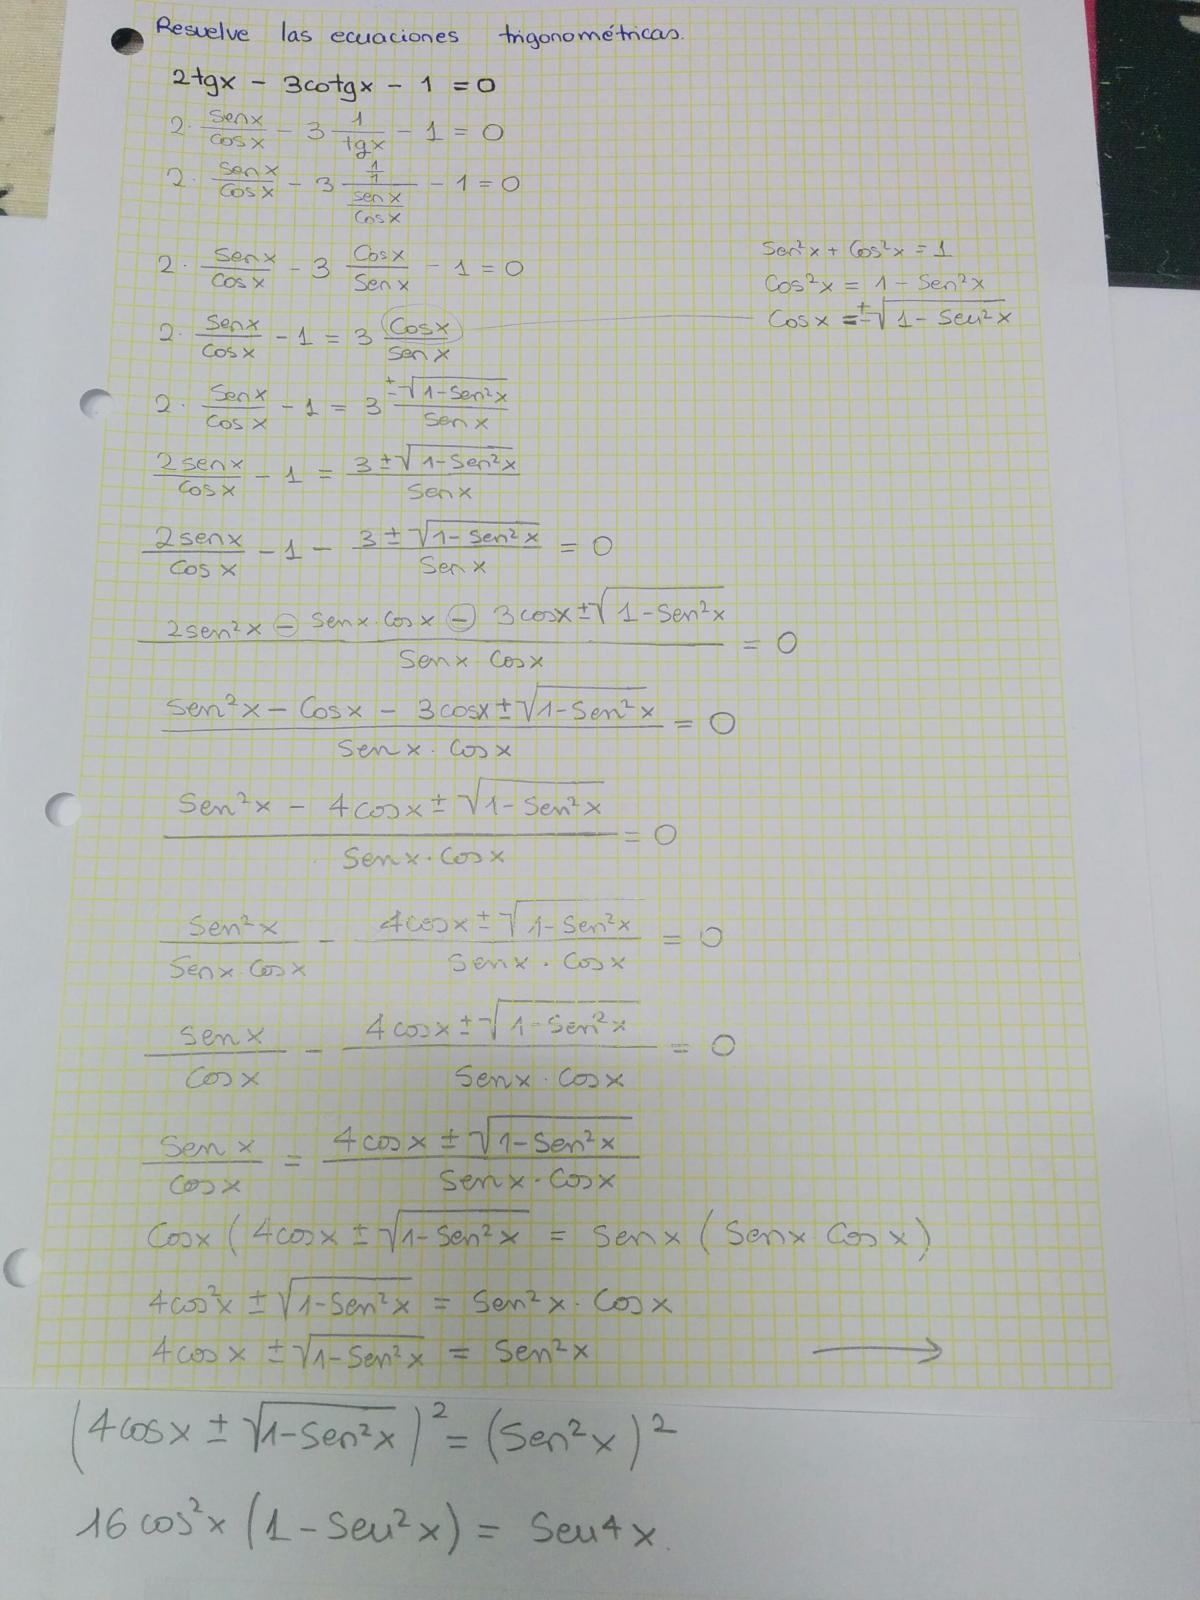 Resuelve las ecuaciones trigonométricas.
2tgx - 3cotgx - 1 = 0
2· senx/cosx - 3 1/tgx - 1 = 0
2· senx/cosx - 3 (1/1)/(senx/cosx) - 1 = 0
2· senx/cosx - 3 cosx/senx - 1 = 0
2· senx/cosx - 1 = 3 cosx/senx
Sen²x + Cos²x = 1
Cos²x = 1 - Sen²x
Cosx = ±√(1 - Sen²x)
2· senx/cosx - 1 = 3 ±√(1-Sen²x)/Senx
2senx/cosx - 1 = 3±√(1-Sen²x)/Senx
2senx/cosx - 1 - 3±√(1-Sen²x)/Senx = 0
2sen²x ⊖ senx·cosx ⊖ 3cosx±√(1-Sen²x)/Senx Cosx = 0
Sen²x - Cosx - 3cosx±√(1-Sen²x)/Senx·Cosx = 0
Sen²x - 4cosx±√(1-Sen²x)/Senx·Cosx = 0
Sen²x/Senx·Cosx - 4cosx±√(1-Sen²x)/Senx·Cosx = 0
Senx/Cosx - 4cosx±√(1-Sen²x)/Senx·Cosx = 0
Senx/Cosx = 4cosx±√(1-Sen²x)/Senx·Cosx
Cosx(4cosx±√(1-Sen²x) = Senx(Senx Cosx)
4cos²x ±√(1-Sen²x) = Sen²x·Cosx
4cosx ±√(1-Sen²x) = Sen²x →
(4cosx ±√(1-Sen²x))² = (Sen²x)²
16cos²x(1-Sen²x) = Sen⁴x.